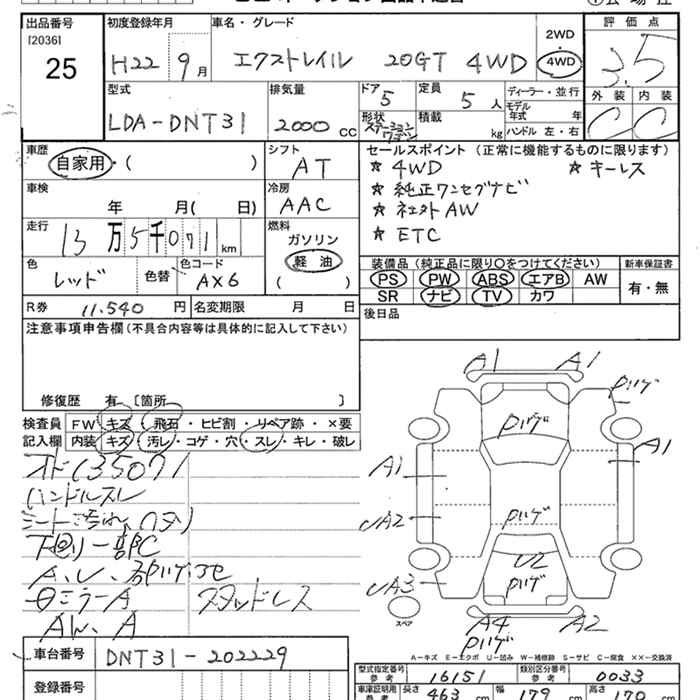 出品番号 初度登録年月 車名・グレード 評価点
[2036]
25
H22年 9月 エクストレイル 20GT 4WD 2WD・4WD 3.5
型式 排気量 ドア 定員 ディーラー・並行 外装 内装
LDA-DNT31 2000 cc 5 5人 モデル年式 年 C C
形状 ステーションワゴン 積載 kg ハンドル 左・右
車歴 シフト セールスポイント (正常に機能するものに限ります)
自家用・( ) AT ★ 4WD ★ キーレス
車検 冷房 ★ 純正ワンセグナビ
年 月( 日) AAC ★ 社外AW
走行 燃料 ★ ETC
13万5千071km ガソリン 軽油 ( )
装備品 (純正品に限り○をつけてください) 新車保証書
色 色替 色コード PS PW ABS エアB AW 有・無
レッド AX6 SR ナビ TV カワ
R券 11.540円 名変期限 月 日 後日品
注意事項申告欄 (不具合内容等は具体的に記入して下さい)
修復歴 有 [箇所 ]
検査員 FW キズ・飛石・ヒビ割・リペア跡・×要
記入欄 内装 キズ・汚レ・コゲ・穴・スレ・キレ・破レ
オド135071
ハンドルスレ
シート汚れ、
下回り一部C
A、U、
ミラーA スタッドレス
A
A1 A1
Pハゲ
Pハゲ
A1 A1
Pハゲ
UA2
U2
Pハゲ
UA3
スペア
A4 A2
Pハゲ
A-キズ E-エクボ U-凹み W-補修跡 S-サビ C-腐食 ××-交換済
車台番号 DNT31-202229
登録番号
型式指定番号 参考 16151 類別区分番号 参考 0033
車庫証明用 参考 長さ 463 cm 幅 179 cm 高さ 170 cm